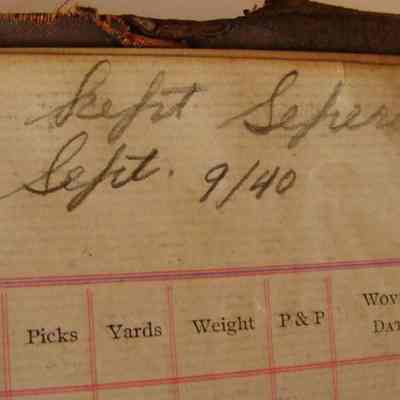 Kept Sepera
Sept. 9/40
Picks Yards Weight P & P Wov
Dat